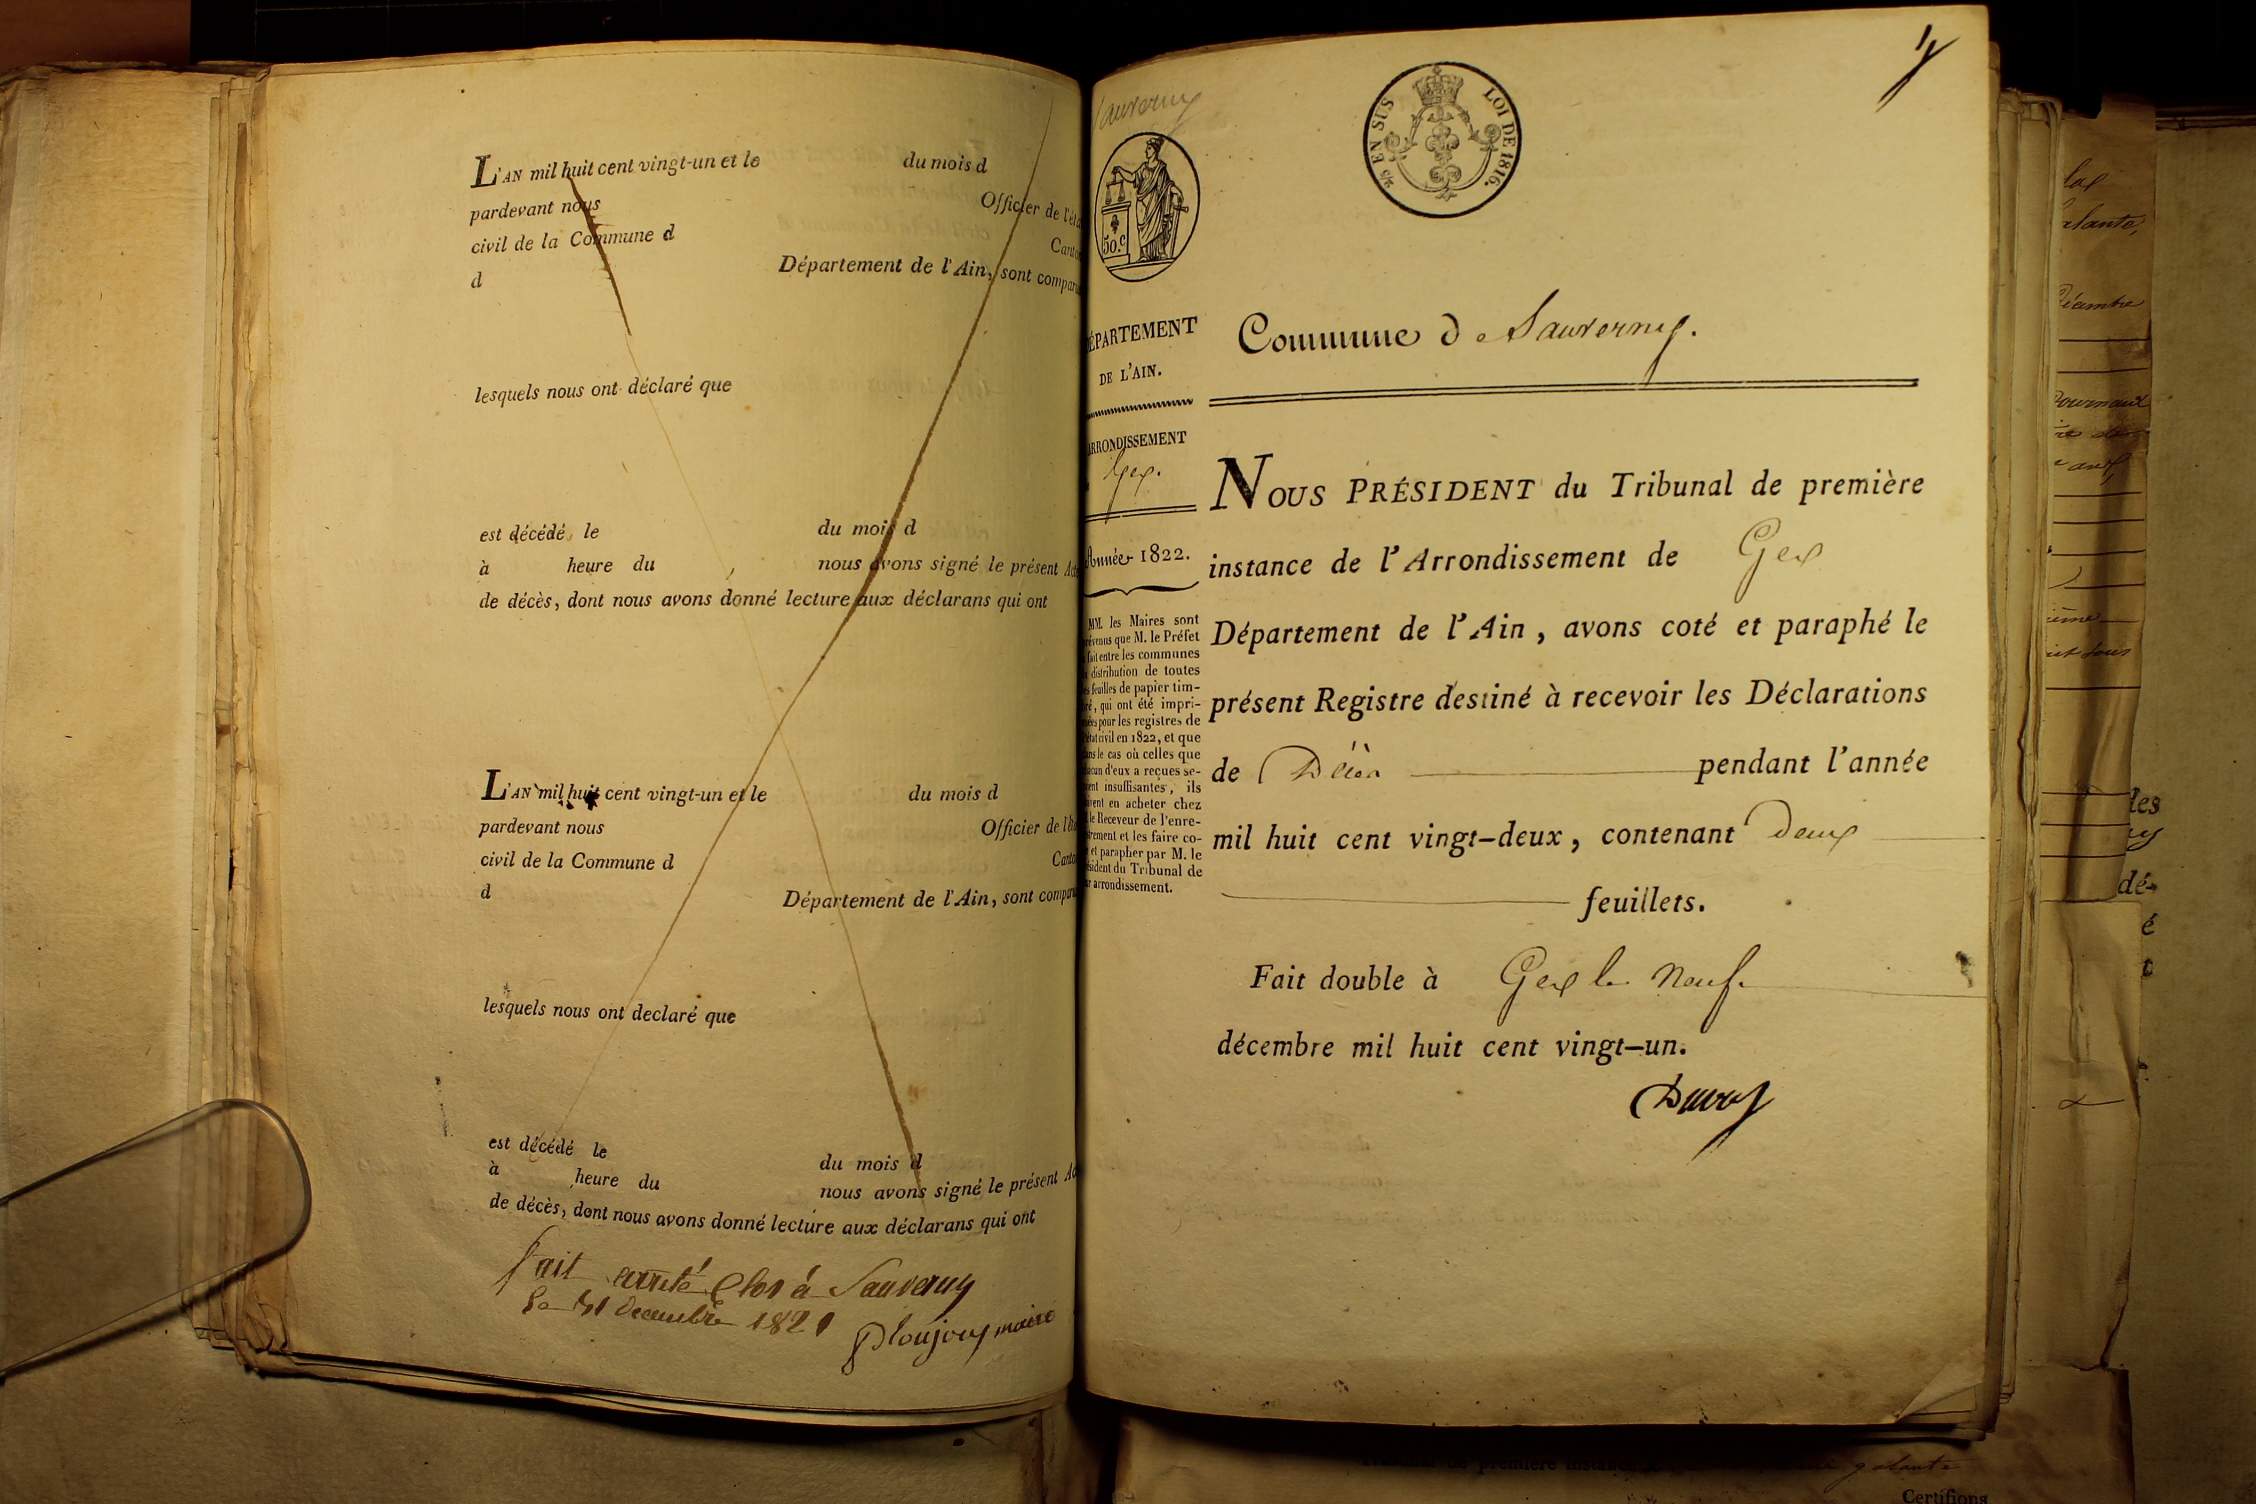 L'AN mil huit cent vingt-un et le du mois d
pardevant nous Officier de l'éta
civil de la Commune d Canto
d Département de l'Ain, sont comparu
lesquels nous ont déclaré que
est décédé le du mois d
à heure du , nous avons signé le présent Acte
de décès, dont nous avons donné lecture aux déclarans qui ont
L'AN mil huit cent vingt-un et le du mois d
pardevant nous Officier de l'éta
civil de la Commune d Canto
d Département de l'Ain, sont comparu
lesquels nous ont declaré que
est décédé le du mois d
à heure du nous avons signé le présent Ac
de décès, dont nous avons donné lecture aux déclarans qui ont
fait arreté Clos à Sauverny
Le 31 Decembre 1821
maire
Sauverny
50.c
EN SUS LOI DE 1816.
DÉPARTEMENT
DE L'AIN.
ARRONDISSEMENT
Gex.
Année 1822.
MM. les Maires sont
prévenus que M. le Préfet
a fait entre les communes
la distribution de toutes
les feuilles de papier tim-
bré, qui ont été impri-
mées pour les registres de
l'état civil en 1822, et que
dans le cas où celles que
chacun d'eux a reçues se-
roient insuffisantes, ils
doivent en acheter chez
M. le Receveur de l'enre-
gistrement et les faire co-
ter et parapher par M. le
Président du Tribunal de
leur arrondissement.
Commune de Sauverny.
NOUS PRÉSIDENT du Tribunal de première
instance de l'Arrondissement de Gex
Département de l'Ain, avons coté et paraphé le
présent Registre destiné à recevoir les Déclarations
de Décès pendant l'année
mil huit cent vingt-deux, contenant Deux
feuillets.
Fait double à Gex le Neuf
décembre mil huit cent vingt-un.
Certifions